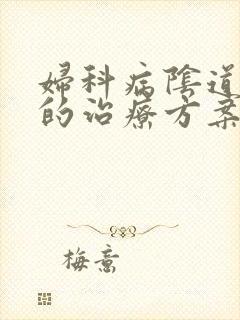 婦科病陰道
的治療方案
梅意